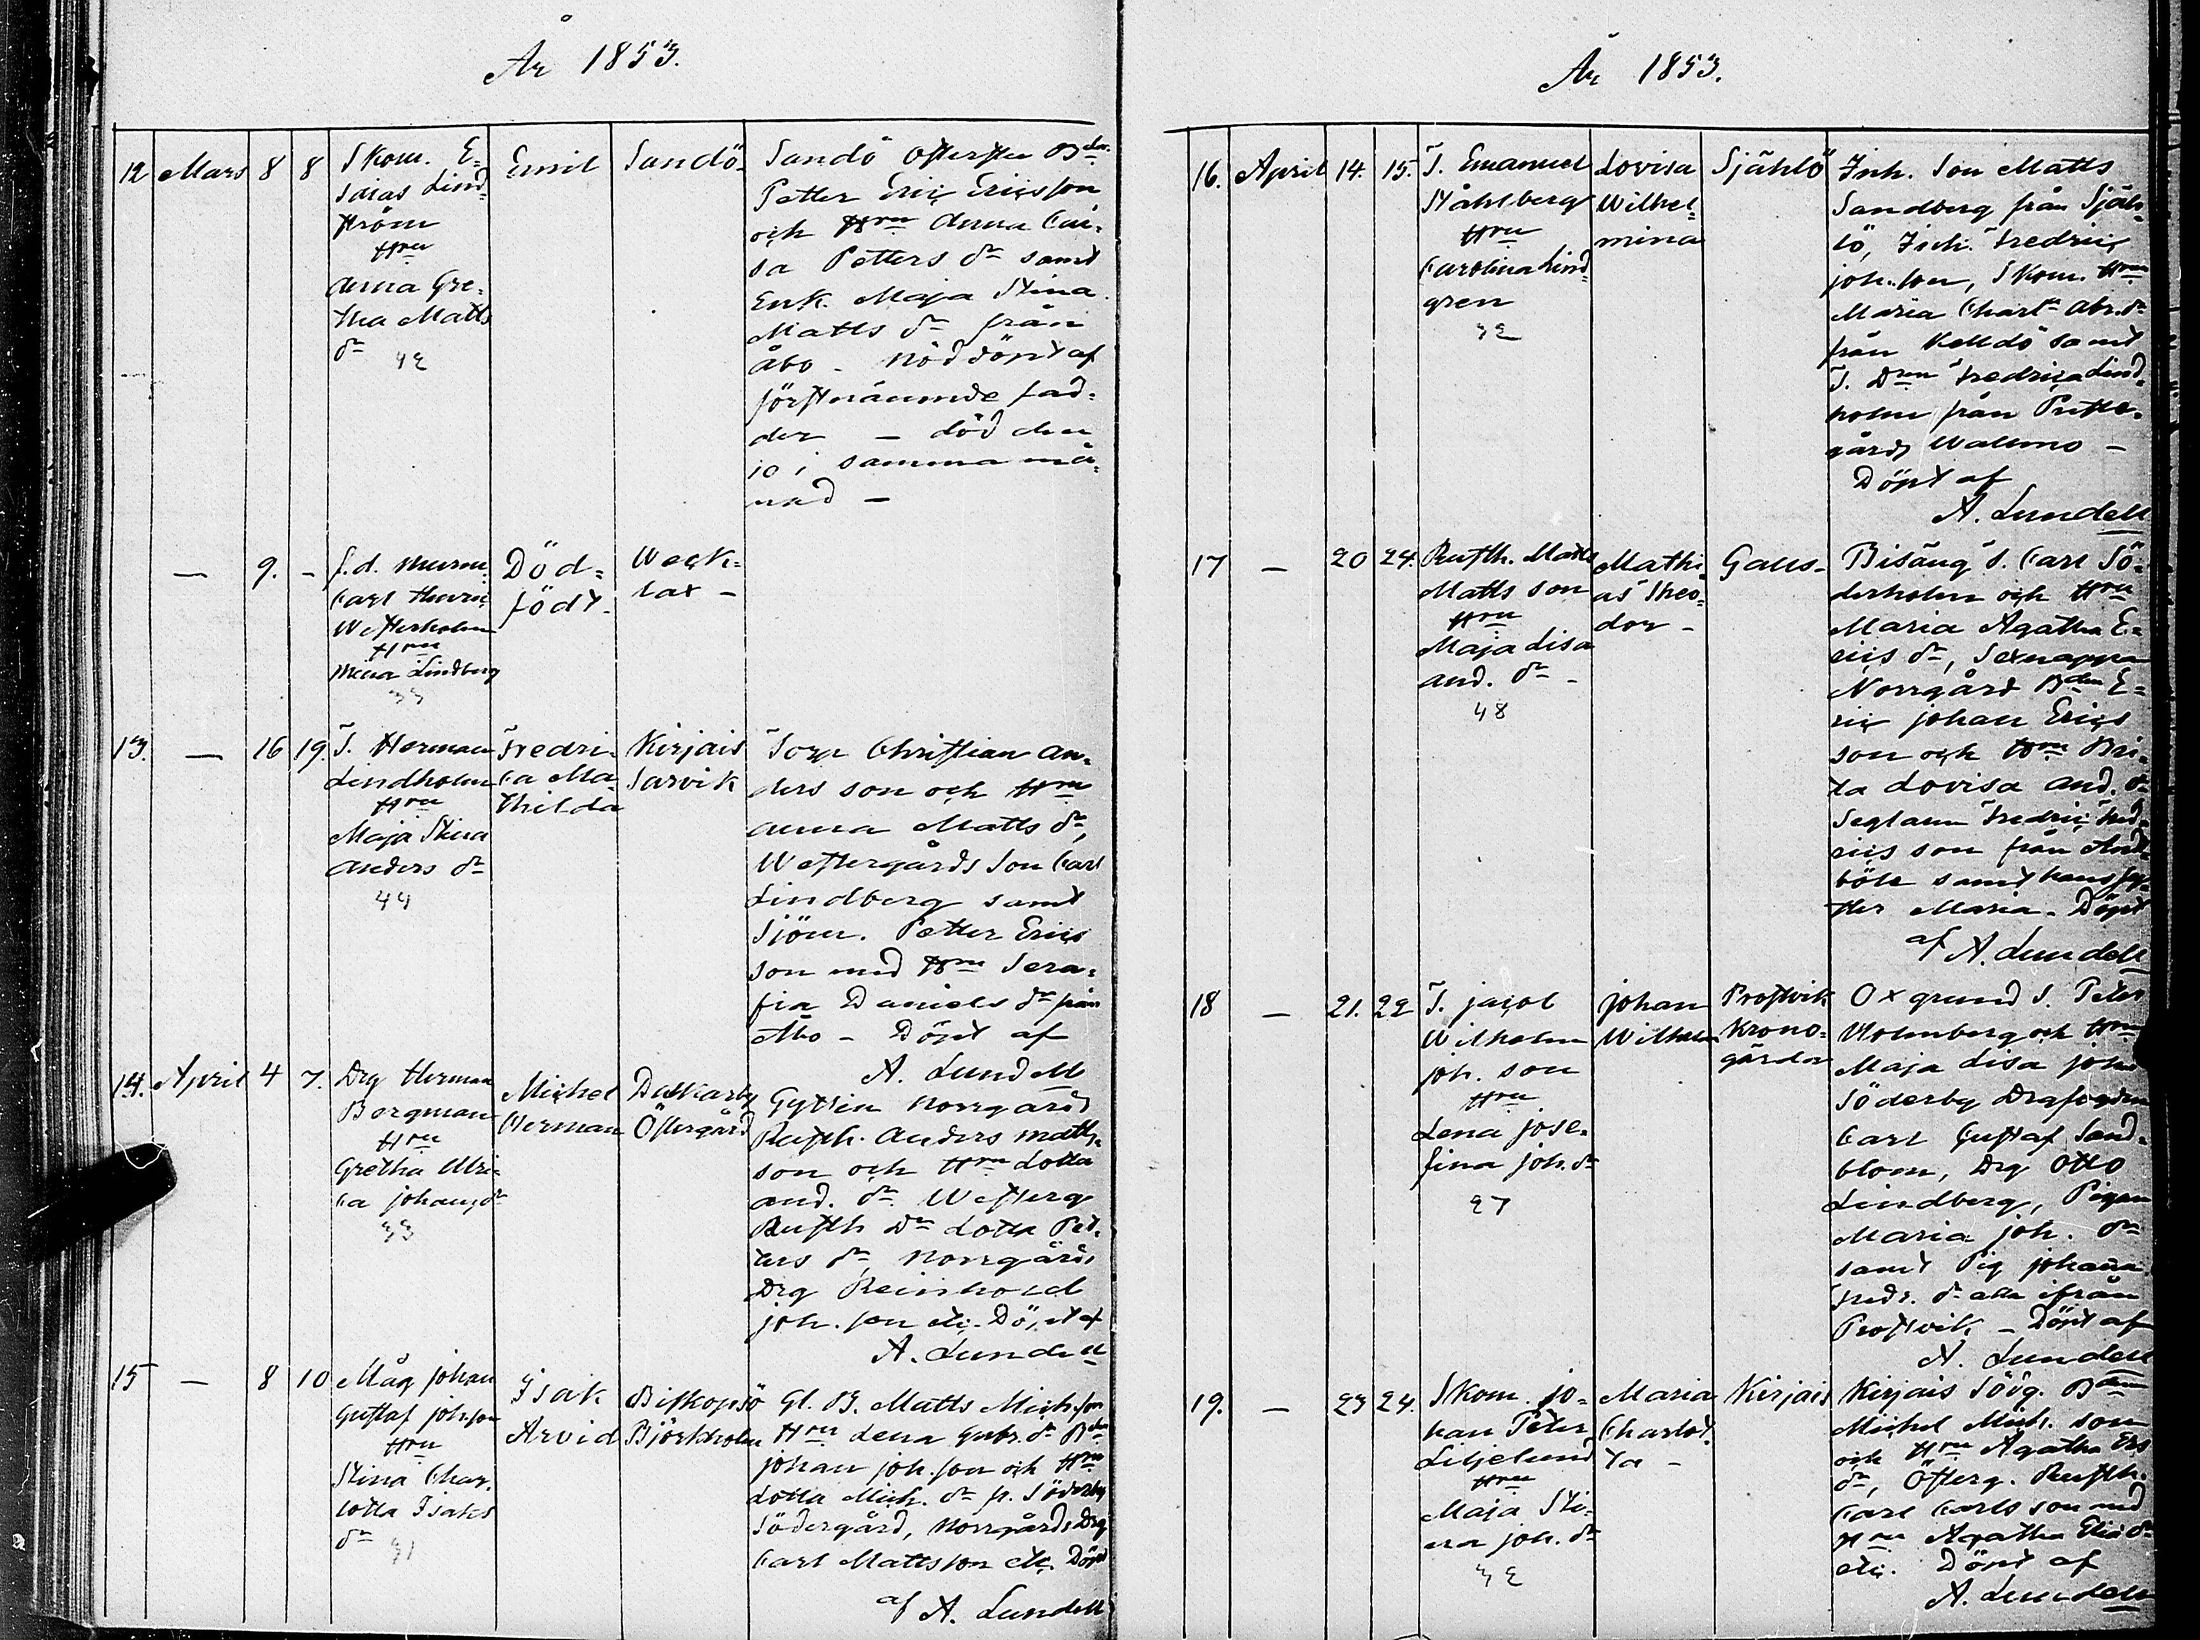 År 1853.
12 Mars 8 8
Skom. E=
saias Lind=
ström
Hru
Anna Gre=
tha Matts
dr
42
Emil
Sandö
Sandö Österstu Bdn
Petter Eric Ericsson
och Hru Anna Cai=
sa Petters dr samt
Enk. Maja Stina
Matts dr från
Åbo - Nöddöpt af
förstnämnde fad=
der - död den
10 i samma må=
nad -
- 9. -
f.d. Murm.
Carl Henric
Westerholm
Hru
Mina Lindberg
33
Död=
födt.
Weck=
lax -
13. - 16 19.
T. Herman
Lindholm
Hru
Maja Stina
Anders dr
44
Fredri=
ca Ma=
thilda
Kirjais
Sarvik
Torp Christian An=
ders son och Hru
Anna Matts dr,
Westergårds Son Carl
Lindberg samt
Sjöm. Petter Erics
son med Hru Sera=
fia Daniels dr från
Åbo - Döpt af
A. Lundell
14. April 4 7.
Drg Herman
Borgman
Hru
Gretha Ulri=
ca Johans dr
33
Michel
Herman
Dalkarby
Östergård
Gyttin Norrgårds
Rusth. Anders Matts
son och Hru Lotta
And. dr. Westerg
Rusth Dr Lotta Pet=
ters dr, Norrgårds
Drg Reinhold
Joh. son etc. Döpt af
A. Lundell
15 - 8 10
Måg Johan
Gustaf Joh.son
Hru
Stina Char=
lotta Isaks
dr
31
Isak
Arvid
Biskopsö
Björkholm
Gl. B. Matts Mich.son
Hru Lena Gabr. dr Bdn
Johan Joh.son och Hru
Lotta Mich. dr fr. Söderby
Södergård, Norrgårds Drg
Carl Mattsson etc. Döpt
af A. Lundell
År 1853.
16. April 14. 15.
T. Emanuel
Ståhlberg
Hru
Carolina Lind=
gren
32
Lovisa
Wilhel=
mina
Själlö
Inh. Son Matts
Sandberg från Själ=
lö, Inh. Fredric
Joh.son, Skom. Hru
Maria Charl. Abr. dr
från Kelldö samt
T. Drn Fredrica Lind=
holm från Prest=
gårds Wallmo -
Döpt af
A. Lundell
17 - 20 24.
Rusth. Matts
Matts son
Hru
Maja Lisa
And. dr -
48
Mathi=
as Theo=
dor -
Galls-
Bisäng T. Carl Sö=
derholm och Hru
Maria Agatha E=
rics dr, Sexnappa
Norrgård Bdn E=
ric Johan Erics
son och Hru Bri=
ta Lovisa And. dr
Seglaren Fredric Fred=
rics son från
böle samt hans sys=
ter Maria. Döpt
af A. Lundell
18 - 21. 22
T. Jacob
Wilhelm
Joh. son
Hru
Lena Jose=
fina Joh. dr
27
Johan
Wilhelm
Prostvik
Krono=
gården
Oxgrund T. Peter
Holmberg och Hru
Maja Lisa Joh
Söderby
Carl Gustaf Sand=
blom, Drg Otto
Lindberg, Pigan
Maria Joh. dr
samt Pig Johanna
Fredr. dr alla ifrån
Prostvik - Döpt af
A. Lundell
19. - 23 24.
Skom. Jo=
han Peter
Liljelund
Hru
Maja Sti=
na Joh. dr
32
Maria
Charlot=
ta -
Kirjais
Kirjais Södg. Bdn
Michel Mich. son
och Hru Agatha Ers
dr, Österg. Rusth.
Carl Carls son med
Hru Agatha Elia dr
etc. Döpt af
A. Lundell